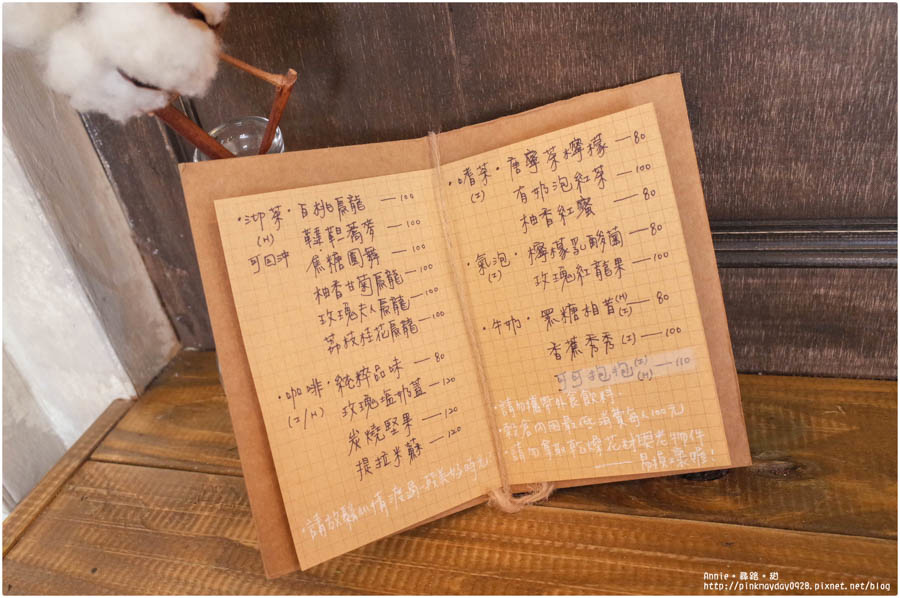 ·沏茶·白桃烏龍 —100
(H) 韃靼蕎麥 —100
可回沖 焦糖圓舞 —100
柚香甘菊烏龍 —100
玫瑰夫人烏龍 —100
荔枝桂花烏龍 —100
·咖啡·純粹品味 —80
(I/H) 玫瑰塩奶蓋 —120
炭燒堅果 —120
提拉米蘇 —120
·請放鬆心情渡過
·嗜茶·唐寧茶檸檬 —80
(I) 有奶泡紅茶 —100
柚香紅蜜 —80
·氣泡·檸檬乳酸菌 —80
(I) 玫瑰紅龍果 —100
·牛奶·黑糖相昔(H)(I) —80
香蕉秀秀(I) —100
可可抱抱(I)(H) —110
·請勿攜帶外食飲料!
低消費每人100元
·請勿拿取乾燥花材與老物件
—— 易損壞喔!
Annie·尋跑·甜
http://pinkmayday0928.pixnet.net/blog